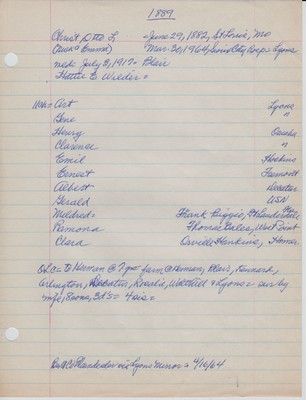 1889
Christ, Otto L = June 29, 1882, St Louis, Mo
Mar 30, 1964, Sioux City Hosp = Lyons
med: July 3, 1917 = Blair
Hattie E Wilder =
Art Lyons
Gene "
Henry Omaha
Clarence "
Emil Hoskins
Ernest Fremont
Albert Decatur
Gerald USN
Mildred = Frank Biggie,
Ramona Thomas Bales, West Point
Clara Orville Hankins, Homer
OLC = to Herman @ 7 yrs = farm @ Herman, Blair, Kennard,
Arlington, Decatur, Rosalie, Walthill & Lyons = sur by
wife, 8 sons, 3 d's =
Lyons Mirror = 4/16/64